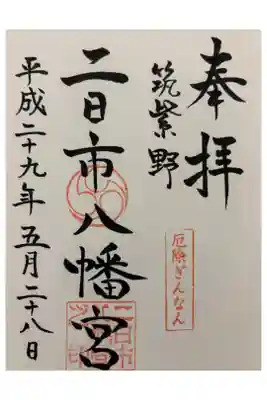 奉拝
筑紫野
厄除ぎんなん
二日市八幡宮
平成二十九年五月二十八日